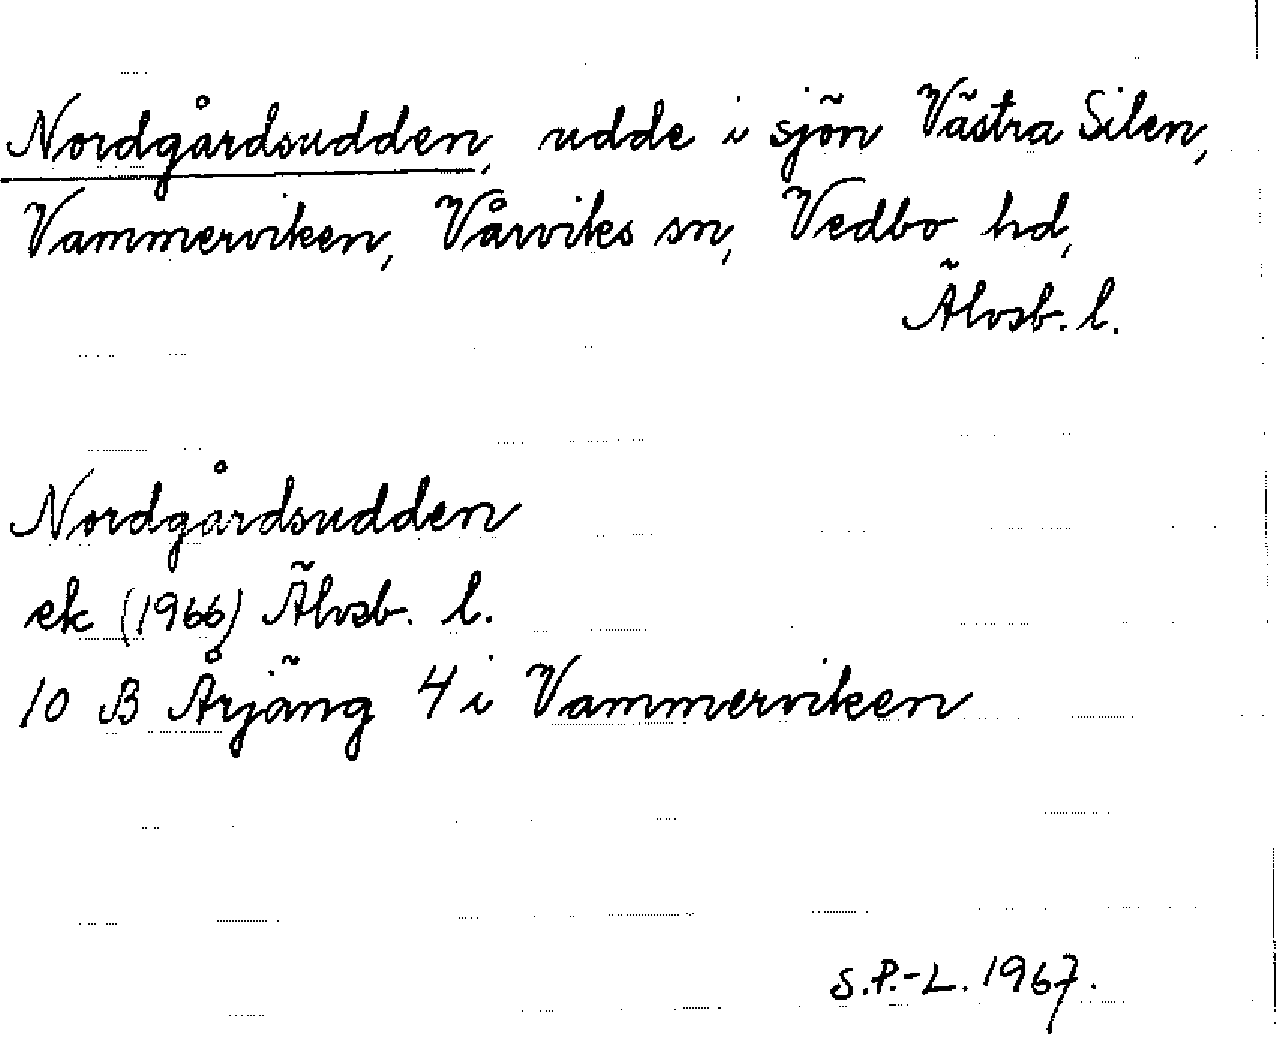 Nordgårdsudden, udde i sjön Västra Silen,
Vammerviken, Vårviks sn, Vedbo hd,
Älvsb. l.
Nordgårdsudden
ek (1966) Älvsb. l.
10 B Årjäng 4 i Vammerviken
S.P.-L. 1967.